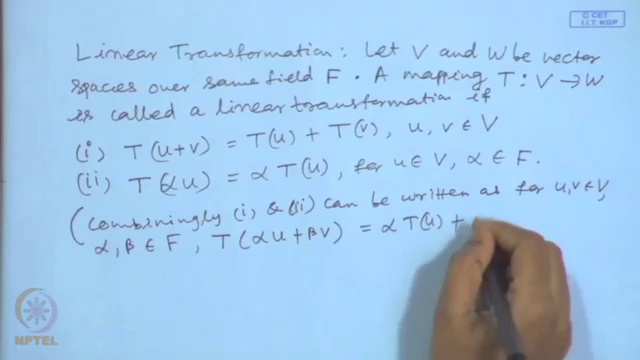 © CET
I.I.T. KGP
Linear Transformation: Let V and W be vector
spaces over same field F. A mapping T: V → W
is called a linear transformation if
(i) T(u+v) = T(u) + T(v), u, v ∈ V
(ii) T(αu) = α T(u), for u ∈ V, α ∈ F.
(Combiningly (i) & (ii) can be written as for u, v ∈ V,
α, β ∈ F, T(αu + βv) = α T(u) +
NPTEL